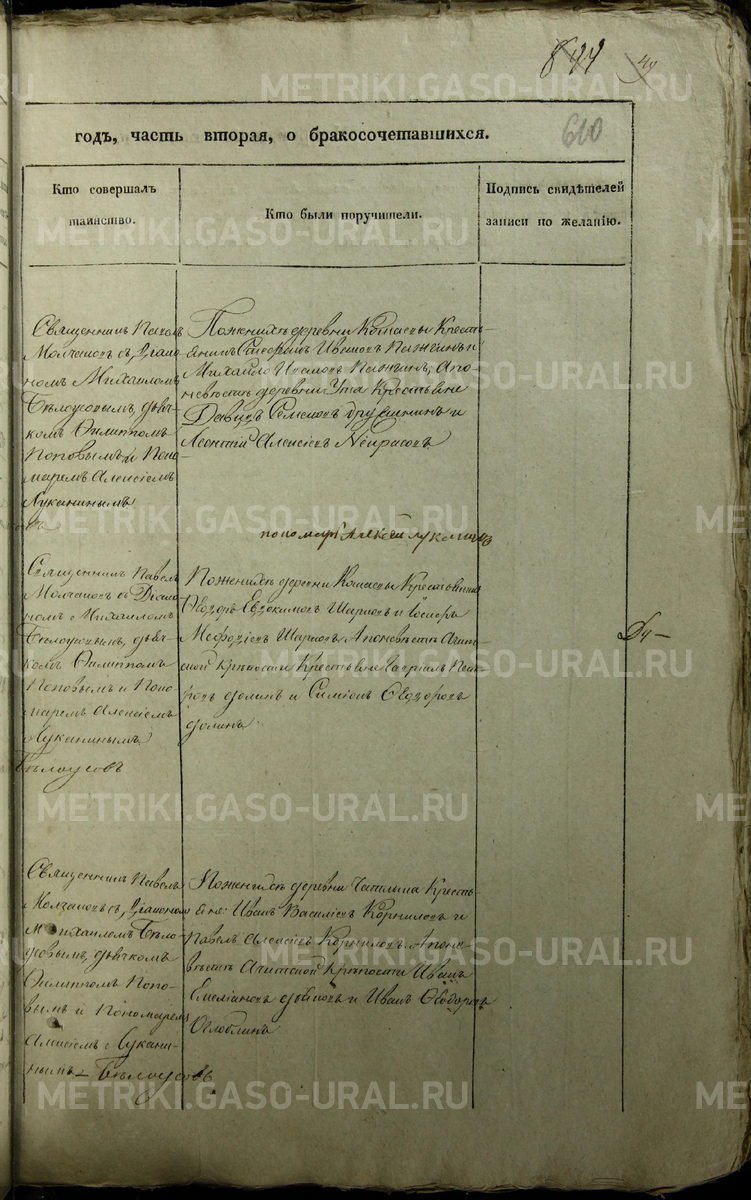 844
44
610
годъ, часть вторая, о бракосочетавшихся.
Кто совершалъ
таинство.
Кто были поручители.
Подпись свидѣтелей
записи по желанію.
Священникъ Павелъ
Молчановъ съ Діако-
номъ Михаиломъ
Бѣлоусовымъ, дьяч-
комъ Филиппомъ
Поповымъ и Поно-
маремъ Алексіемъ
Луканинымъ
По женихѣ деревни Крестья-
Иванов
Михайло Ивановъ а по
невѣстѣ деревни Ута Крестьяне
Давидъ Семеновъ и
Леонтій Алексіевъ Некрасовъ
пономарь Алексей Луканинъ
Священникъ Павелъ
Молчановъ съ Діако-
номъ Михаиломъ
Бѣлоусовымъ, дьяч-
комъ Филиппомъ
Поповымъ и Поно-
маремъ Алексіемъ
Луканинымъ
Бѣлоусовъ
По женихѣ деревни Крестьяне
Ѳедоръ Евдокимовъ Шаровъ и
Меѳодіевъ Шаровъ, а по невѣстѣ Ачит-
ской крѣпости Крестьяне Гавріилъ Пет-
ровъ и Симеонъ Ѳедоровъ
Священникъ Павелъ
Молчановъ съ Діакономъ
Михаиломъ Бѣло-
усовымъ, дьячкомъ
Филиппомъ Попо-
вымъ и Пономаремъ
Алексіемъ Лукани-
нымъ Бѣлоусовъ
По женихѣ деревни Кресть-
яне Иванъ Василіевъ Корниловъ и
Павелъ Алексіевъ Корниловъ, а по не-
вѣстѣ Ачитской Крѣпости Иванъ
Емеліановъ и Иванъ Ѳеодоровъ
Оглоблинъ
METRIKI.GASO-URAL.RU